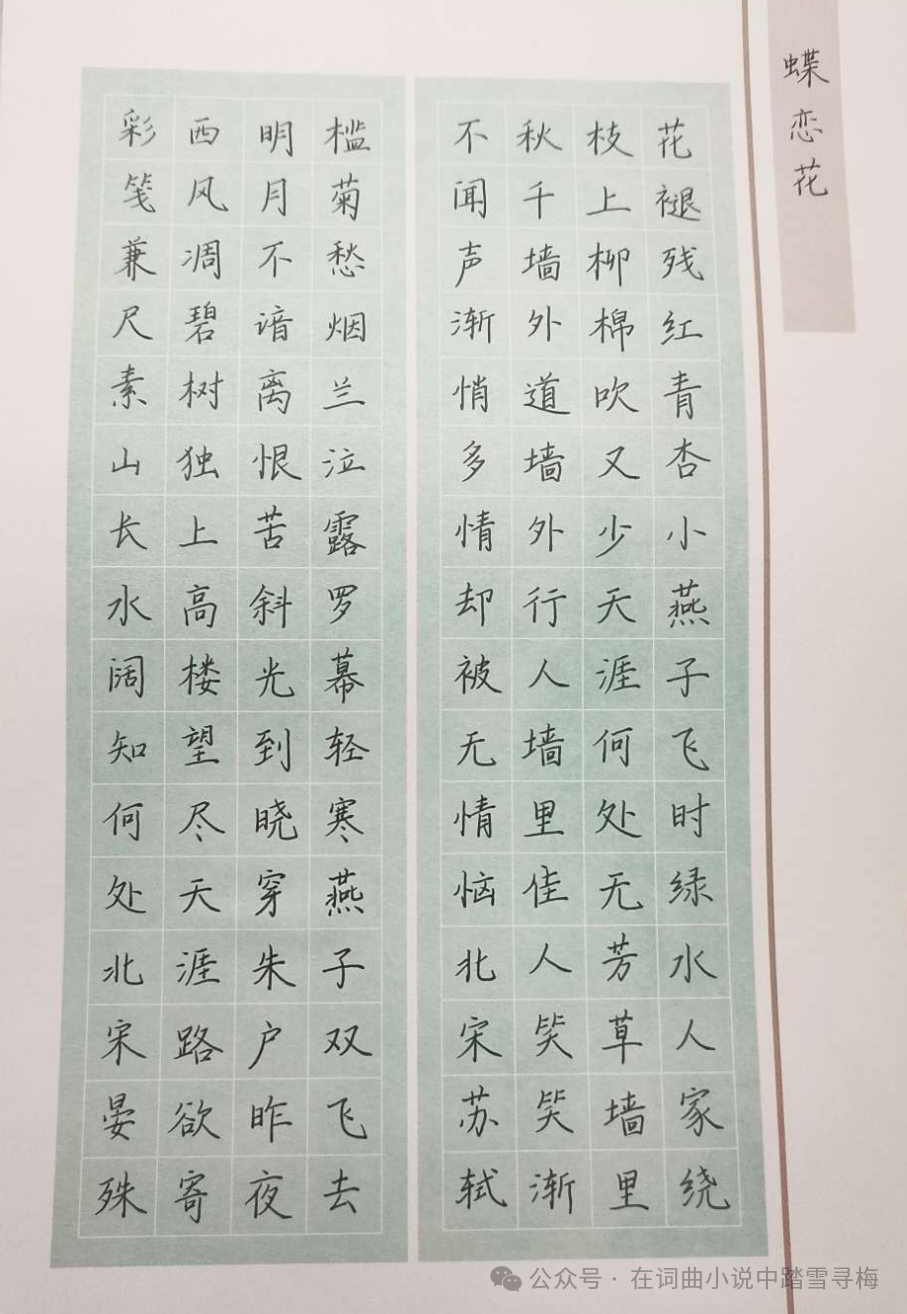 蝶恋花
花褪残红青杏小燕子飞时绿水人家绕
枝上柳棉吹又少天涯何处无芳草墙里
秋千墙外道墙外行人墙里佳人笑笑渐
不闻声渐悄多情却被无情恼北宋苏轼
槛菊愁烟兰泣露罗幕轻寒燕子双飞去
明月不谙离恨苦斜光到晓穿朱户昨夜
西风凋碧树独上高楼望尽天涯路欲寄
彩笺兼尺素山长水阔知何处北宋晏殊
公众号·在词曲小说中踏雪寻梅